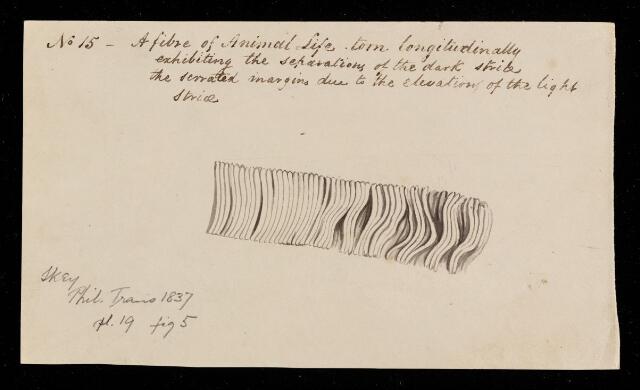 No 15 - A fibre of Animal Life torn longitudinally
exhibiting the separations of the dark striæ
the serrated margins due to the elevations of the light
striæ
Skey
Phil. Trans 1837
pl. 19 fig 5